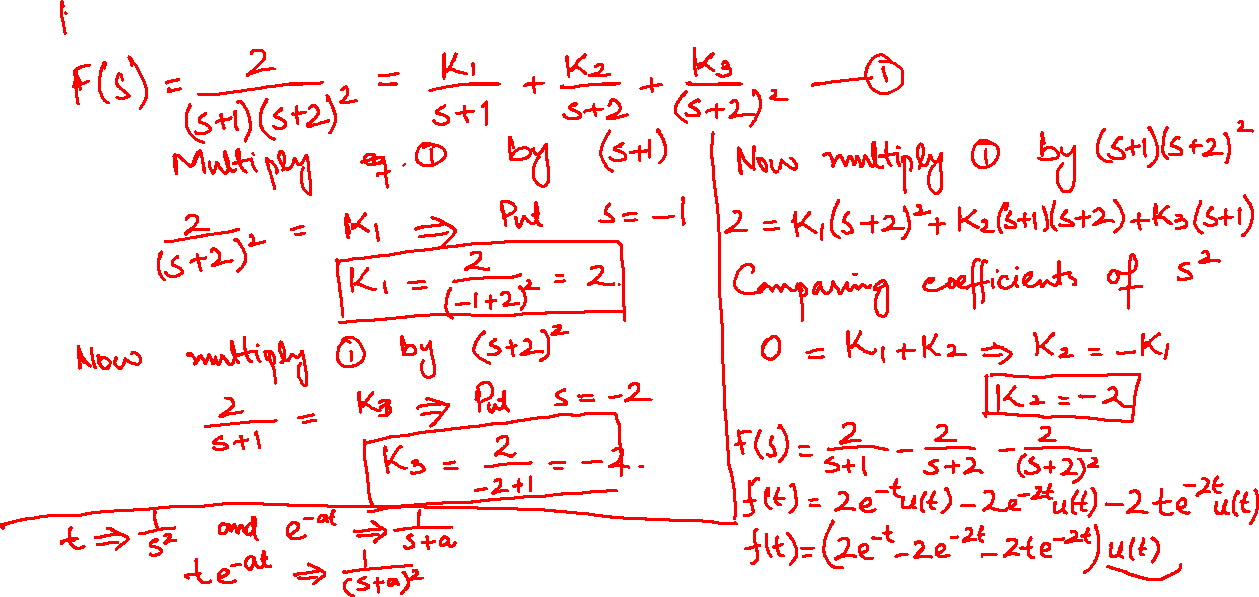 F(s) = 2/((s+1)(s+2)²) = K₁/(s+1) + K₂/(s+2) + K₃/(s+2)² — ①
Multiply eq. ① by (s+1)
2/(s+2)² = K₁ ⇒ Put s = -1
K₁ = 2/(-1+2)² = 2.
Now multiply ① by (s+2)²
2/(s+1) = K₃ ⇒ Put s = -2
K₃ = 2/(-2+1) = -2.
t ⇒ 1/s² and e^(-at) ⇒ 1/(s+a)
te^(-at) ⇒ 1/(s+a)²
Now multiply ① by (s+1)(s+2)²
2 = K₁(s+2)² + K₂(s+1)(s+2) + K₃(s+1)
Comparing coefficients of s²
0 = K₁ + K₂ ⇒ K₂ = -K₁
K₂ = -2
F(s) = 2/(s+1) - 2/(s+2) - 2/(s+2)²
f(t) = 2e^(-t)u(t) - 2e^(-2t)u(t) - 2te^(-2t)u(t)
f(t) = (2e^(-t) - 2e^(-2t) - 2te^(-2t)) u(t)